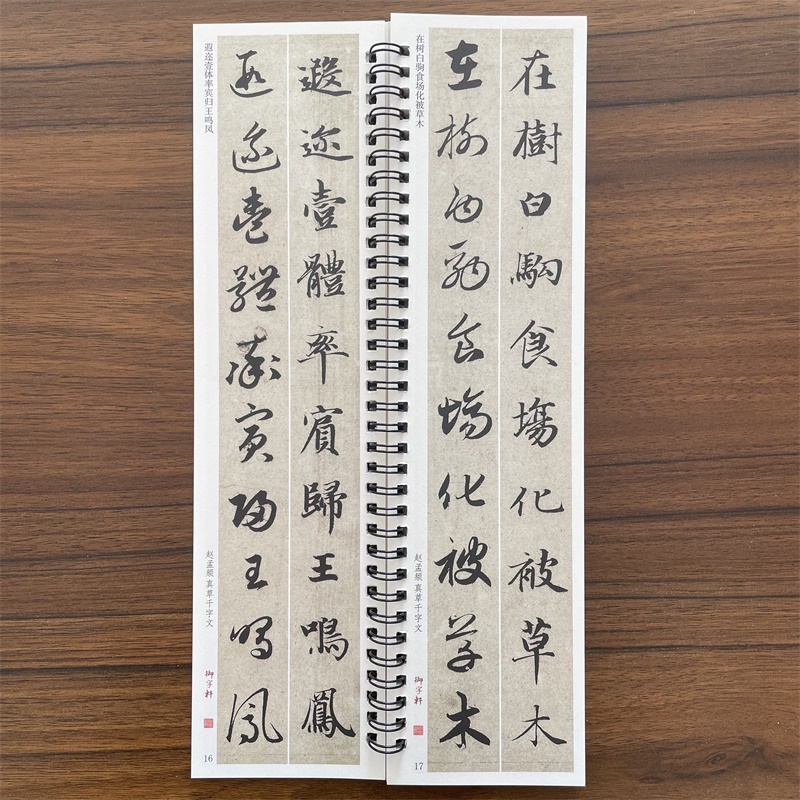 遐迩壹体率宾归王鸣凤
遐迩壹體率賓歸王鳴鳳
遐迩壹體率賓歸王鳴鳳
赵孟頫真草千字文
御字轩
16
在树白驹食场化被草木
在樹白駒食場化被草木
在樹白駒食場化被草木
赵孟頫真草千字文
御字轩
17